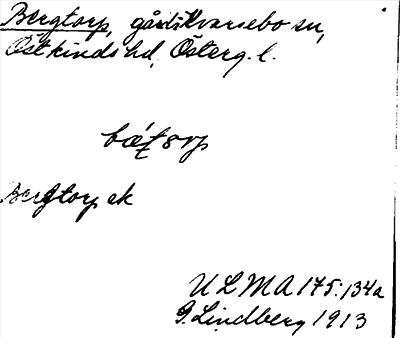 Bergtorp, gård i Kvarsebo sn,
Östkinds hd, Österg. l.
Bergtorp ek
ULMA 175:134a
G. Lindberg 1913